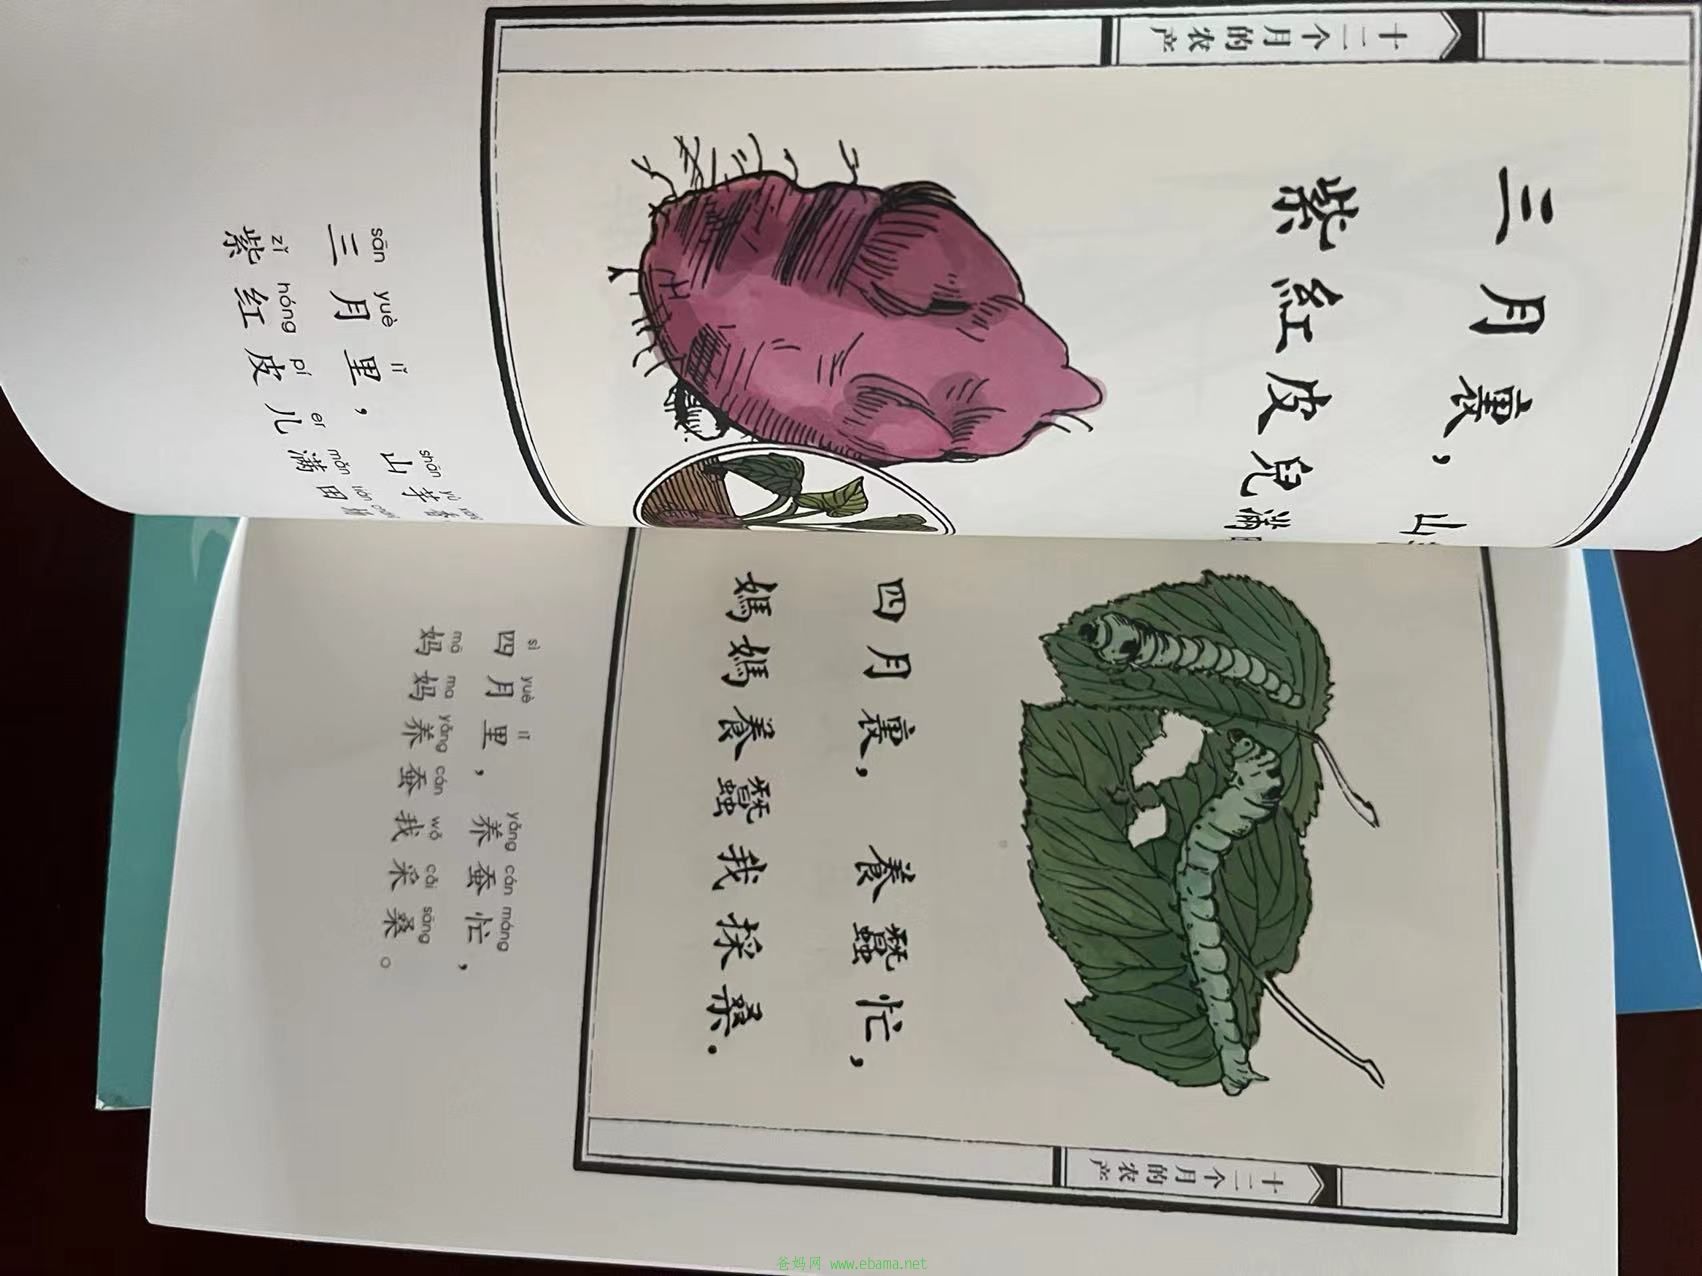 十二个月的农产
三月裏，山
紫紅皮兒滿
sān yuè lǐ shān yù
三月里，山芋香
zǐ hóng pí er mǎn tián
紫红皮儿满田
四月裏，養蠶忙，
媽媽養蠶我採桑．
sì yuè lǐ yǎng cán máng
四月里，养蚕忙，
mā ma yǎng cán wǒ cǎi sāng
妈妈养蚕我采桑。
十二个月的农产
爸妈网 www.ebama.net